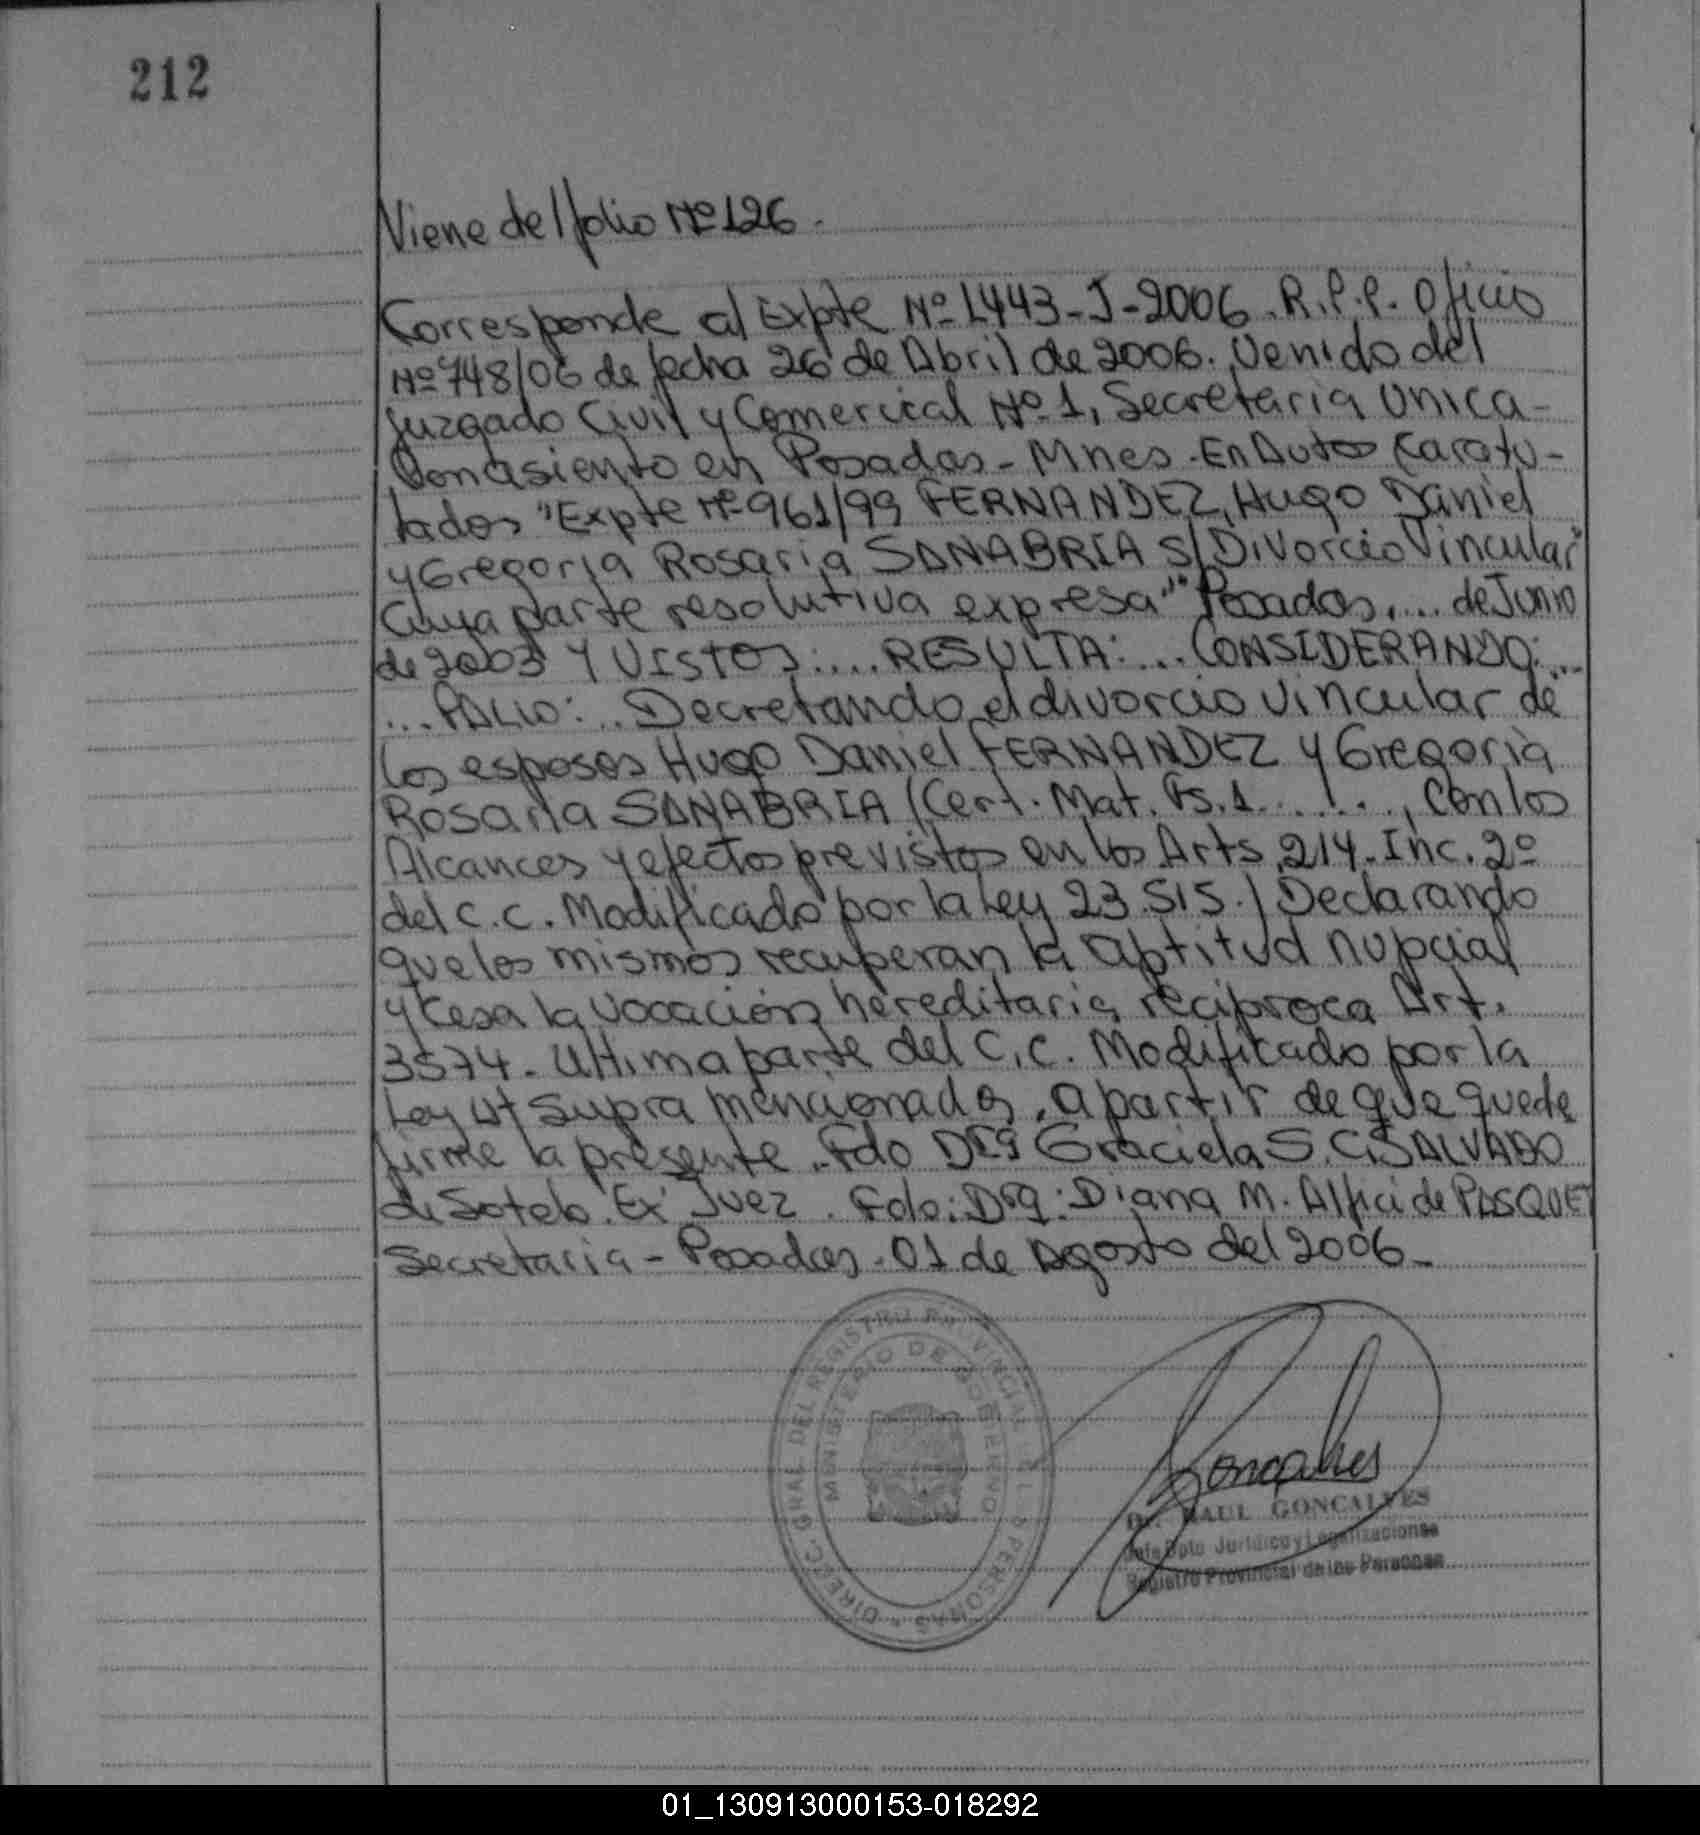 212
Viene del folio Nº 126.
Corresponde al Expte Nº 1443-J-2006. R.P.P. Oficio
Nº 748/06 de fecha 26 de Abril de 2006. Venido del
Juzgado Civil y Comercial Nº 1, Secretaria Unica-
Con asiento en Posadas - Mnes. En Autos Caratu-
lados "Expte Nº 961/99 FERNANDEZ, Hugo Daniel
y Gregoria Rosaria SANABRIA S/ Divorcio Vincular"
Cuya parte resolutiva expresa" "Posadas, .... de Junio
de 2003 Y VISTOS: .... RESULTA: .... CONSIDERANDO: ...
... FALLO: ... Decretando el divorcio vincular de
los esposos Hugo Daniel FERNANDEZ y Gregoria
Rosaria SANABRIA (Cert. Mat. Fs. 1 ......., Con los
Alcances y efectos previstos en los Arts. 214. Inc. 2º
del C.C. Modificado por la Ley 23.515. / Declarando
que los mismos recuperan la aptitud nupcial
y Cesa la vocación hereditaria reciproca Art.
3574. Ultima parte del C.C. Modificado por la
Ley Ut Supra mencionados, a partir de que quede
firme la presente. Fdo Dra Graciela S. C. SALVADO
de Sotelo. Ex Juez. Fdo: Dra: Diana M. Alfici de PASQUET
Secretaria - Posadas. 01 de Agosto del 2006 -
DIRECC. GRAL DEL REGISTRO PROVINCIAL DE LAS PERSONAS
MINISTERIO DE GOBIERNO
Goncalves
Dr. RAUL GONCALVES
Jefe Dpto Jurídico y Legalizaciones
Registro Provincial de las Personas
01_130913000153-018292